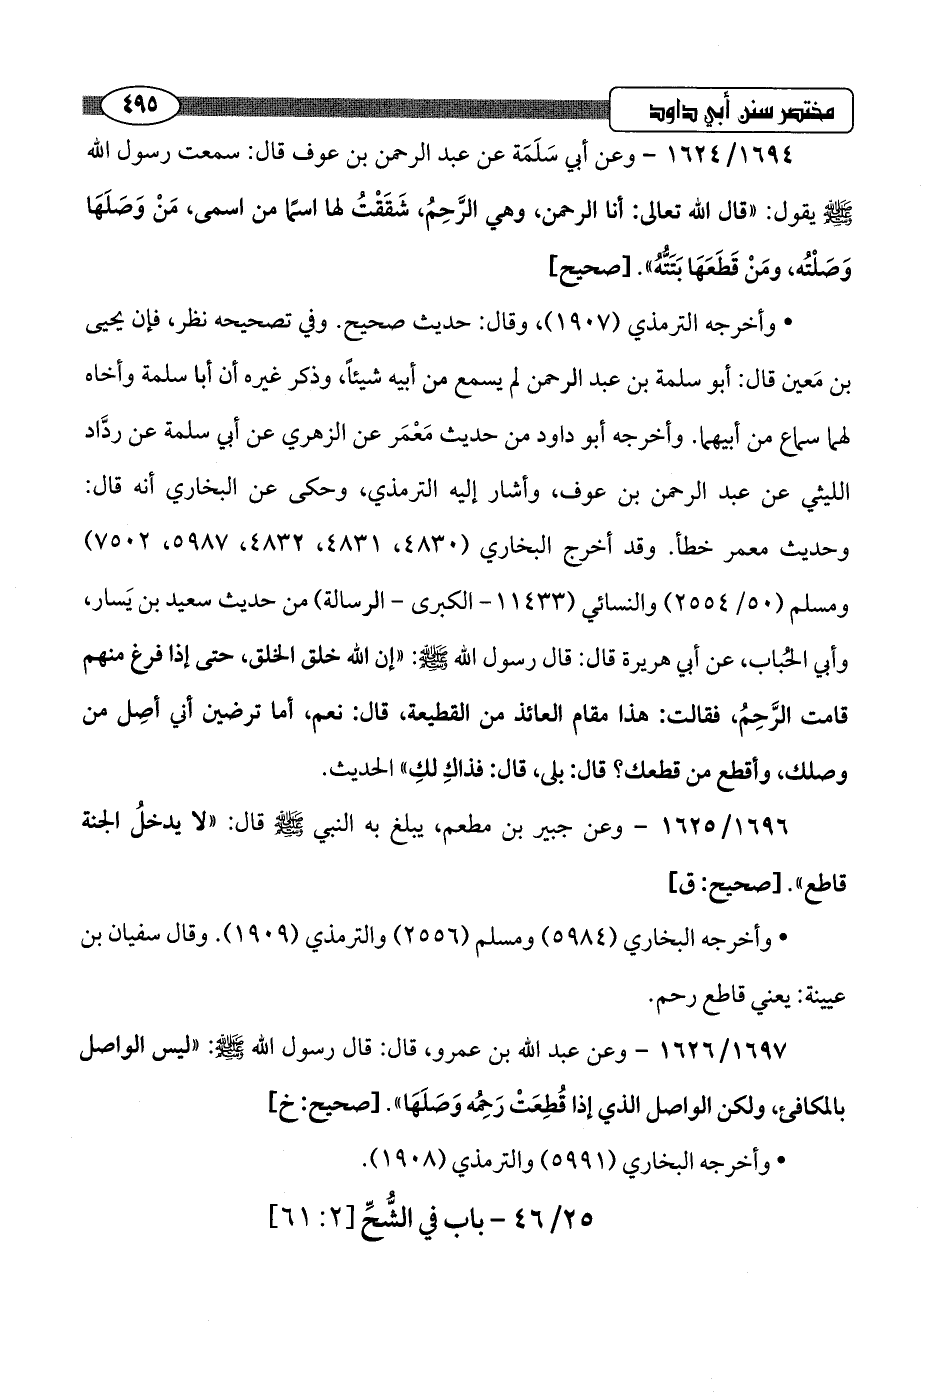 مختصر سنن أبي داود
٤٩٥
١٦٢٤/١٦٩٤ - وعن أبي سَلَمَة عن عبد الرحمن بن عوف قال: سمعت رسول الله
ﷺ يقول: «قال الله تعالى: أنا الرحمن، وهي الرَّحِمُ، شَقَقْتُ لها اسمًا من اسمى، مَنْ وَصَلَهَا
وَصَلْتُه، ومَنْ قَطَعَهَا بَتَتُّهُ». [صحيح]
• وأخرجه الترمذي (١٩٠٧)، وقال: حديث صحيح. وفي تصحيحه نظر، فإن يحيى
بن مَعين قال: أبو سلمة بن عبد الرحمن لم يسمع من أبيه شيئاً، وذكر غيره أن أبا سلمة وأخاه
لهما سماع من أبيهما. وأخرجه أبو داود من حديث مَعْمَر عن الزهري عن أبي سلمة عن ردَّاد
الليثي عن عبد الرحمن بن عوف، وأشار إليه الترمذي، وحكى عن البخاري أنه قال:
وحديث معمر خطأ. وقد أخرج البخاري (٤٨٣٠، ٤٨٣١، ٤٨٣٢، ٥٩٨٧، ٧٥٠٢)
ومسلم (٥٠/ ٢٥٥٤) والنسائي (١١٤٣٣- الكبرى - الرسالة) من حديث سعيد بن يَسار،
وأبي الحُباب، عن أبي هريرة قال: قال رسول الله ﷺ: «إن الله خلق الخلق، حتى إذا فرغ منهم
قامت الرَّحِمُ، فقالت: هذا مقام العائذ من القطيعة، قال: نعم، أما ترضين أني أصِل من
وصلك، وأقطع من قطعك؟ قال: بلى، قال: فذاكِ لكِ» الحديث.
١٦٢٥/١٦٩٦ - وعن جبير بن مطعم، يبلغ به النبي ﷺ قال: «لا يدخلُ الجنة
قاطع». [صحيح: ق]
• وأخرجه البخاري (٥٩٨٤) ومسلم (٢٥٥٦) والترمذي (١٩٠٩). وقال سفيان بن
عيينة: يعني قاطع رحم.
١٦٢٦/١٦٩٧ - وعن عبد الله بن عمرو، قال: قال رسول الله ﷺ: «ليس الواصل
بالمكافئ، ولكن الواصل الذي إذا قُطِعَتْ رَحِمُه وَصَلَهَا». [صحيح: خ]
• وأخرجه البخاري (٥٩٩١) والترمذي (١٩٠٨).
٤٦/٢٥ - باب في الشُّحِّ [٢: ٦١]